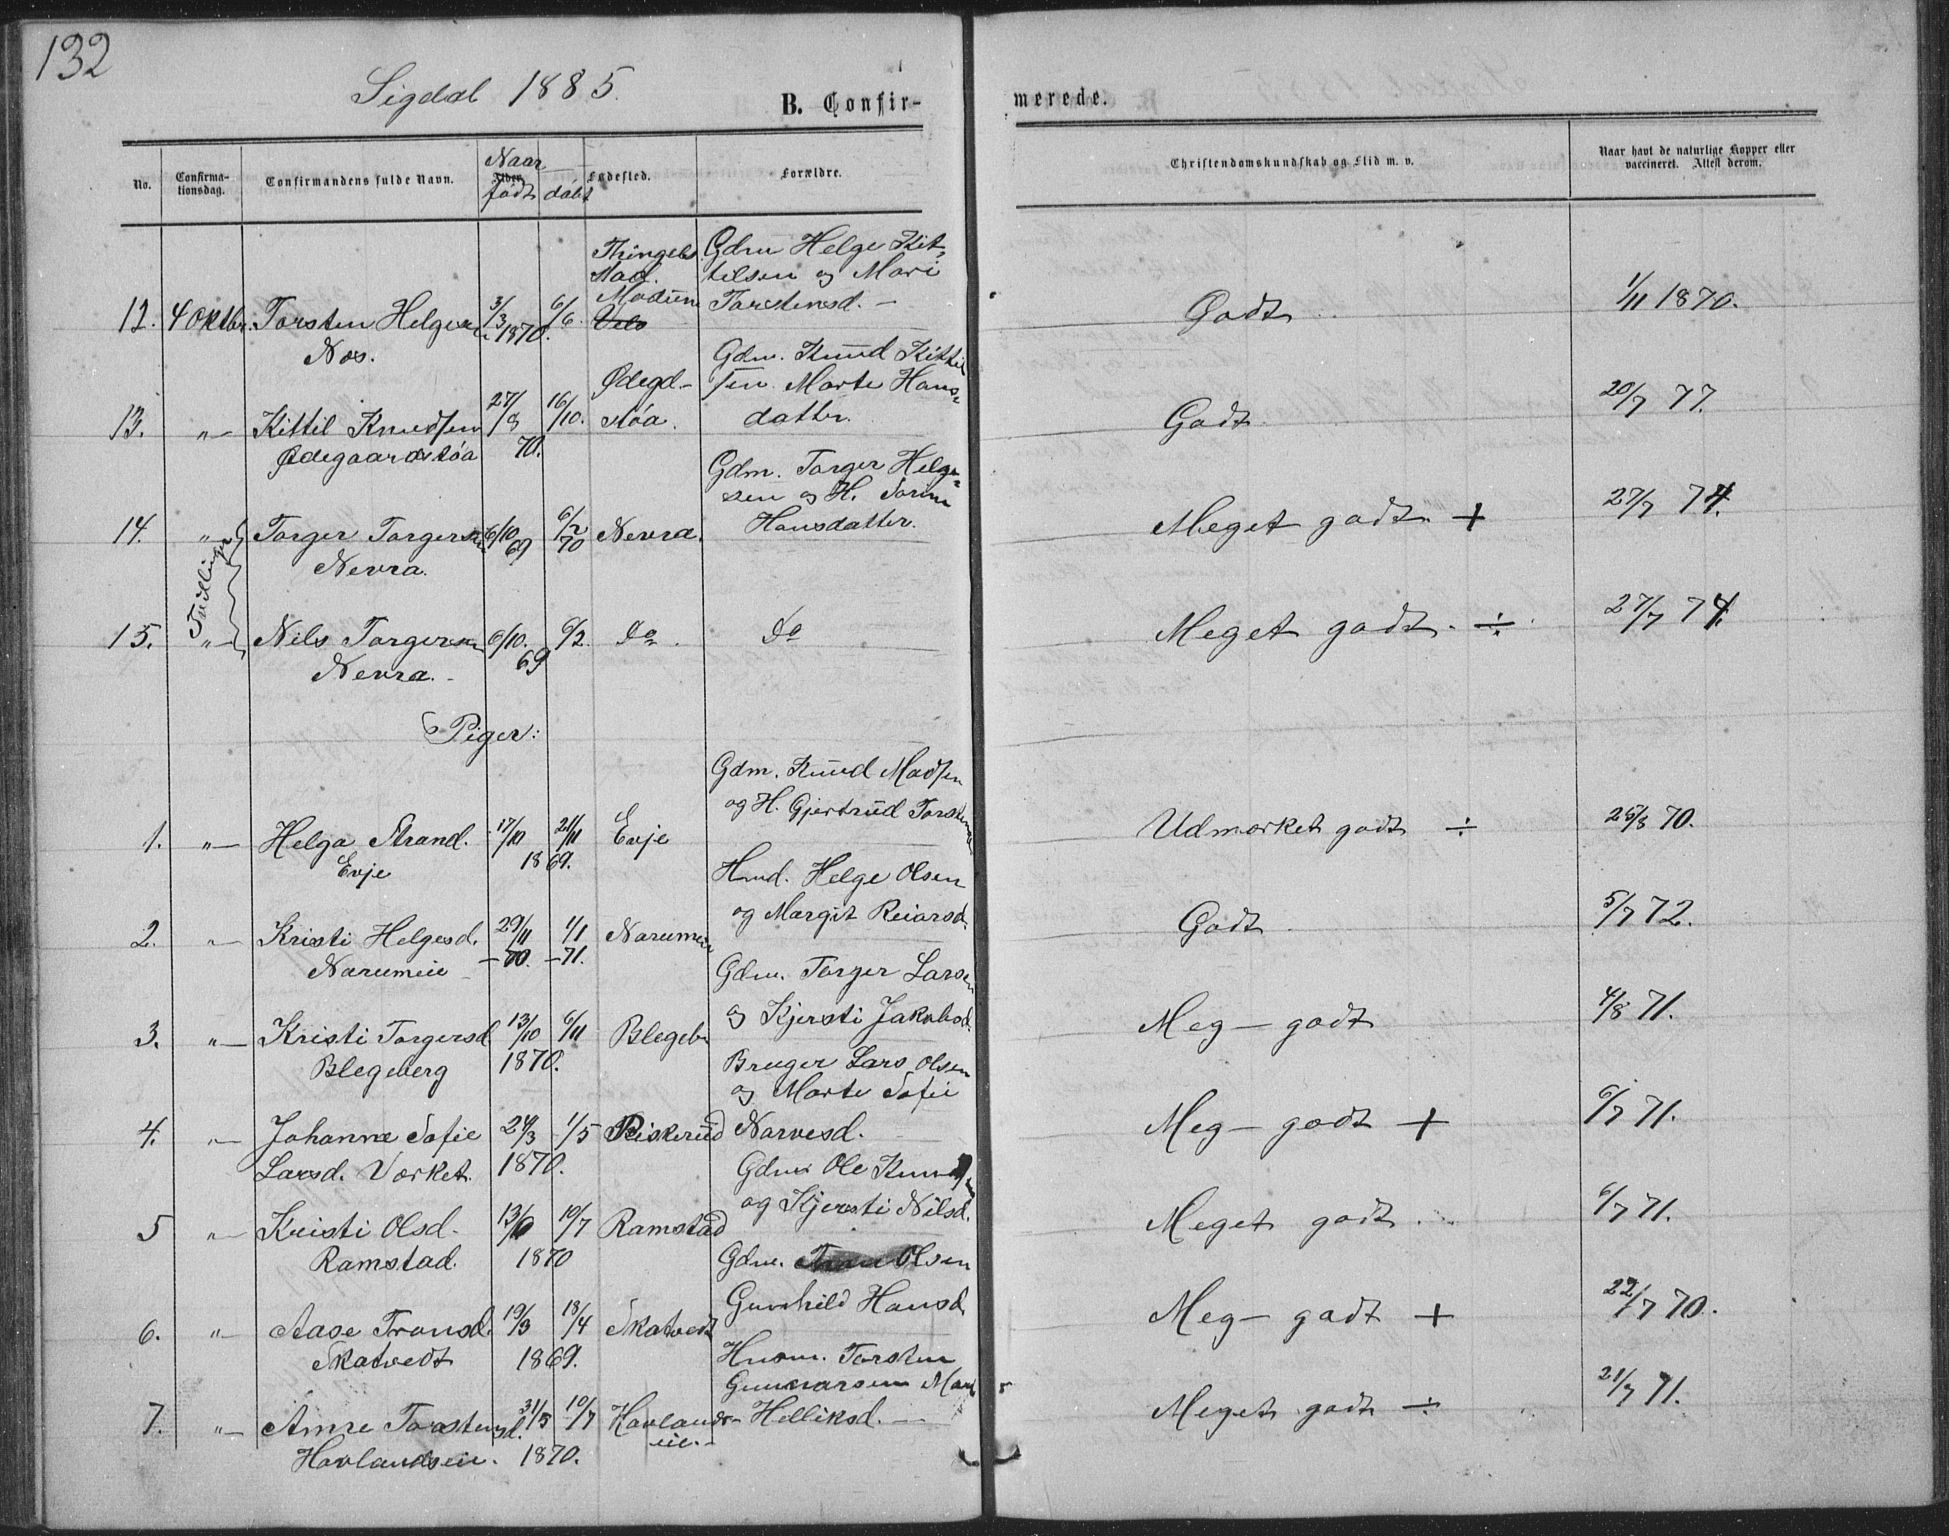 132
Sigdal 1885.
B. Confirmerede.
No. Confirmationsdag. Confirmandens fulde Navn. Naar født døbt Fødested. Forældre. Christendomskundskab og Flid m. v. Naar havt de naturlige Kopper eller vaccineret. Attest derom.
Gdm Helge Kit-
telsen og Mari
12. 4 Oktbr. Torsten Helgesen 3/3 1870. 6/6. Modum Torstensd. — Godt 1/11 1870.
Næs.
Gdm. Knud Kittil
Ødegd- sen Marte Hans-
13. "— Kittil Knudsen 27/8 70. 16/10. støa. datter. Godt 20/7 77.
Ødegaardstøa
Gdm. Torger Helge-
sen og H.
14. " Torger Torgersen 6/10 69 6/2 70 Nevra. Hansdatter. Meget godt + 27/7 74.
Nevra.
Tvillinger
15. "— Nils Torgersen 6/10. 69 6/2. do. do Meget godt. ÷ 27/7 74.
Nevra. -
Piger:
Gdm. Knud Madsen
og H. Gjertrud
1. "— Helga Strand. 17/10 21/11 1869. Evje Udmærket godt ÷ 25/8 70.
Evje
Helge Olsen
og Margit Reiarsd.
2. "— Kristi Helgesd. 29/11 -70. 1/1 -71. Narumeie Godt 5/7 72.
Narumeie
Gdm. Torger Larsen
og Kjersti Jakobsd.
3. "— Kristi Torgersd 13/10 6/11 1870. Meg— godt 4/8 71.
Blegeberg
Bruger Lars Olsen
og Marte Sofie
4. "— Johanne Sofie 24/3 1/5 Riskerud Narvesd. Meg— godt + 6/7 71.
Larsd. Værket. 1870.
Gdm Ole
og Kjersti Nilsd.
5 "— Kristi Olsd. 10/7 Ramstad Meget godt 6/7 71.
Ramstad. 1870
Gdm. Olsen
Gunhild Hansd.
6. "— Aase Tronsd. 19/3 18/4 Skatvedt Meg— godt + 22/7 70.
Skatvedt 1869.
Husm. Torsten
Gunnarsen
7. "— Anne Torstensd. 10/7 Havlands- Helliksd. — Meget godt ÷ 21/7 71.
Havlandseie. 1870. eie.-